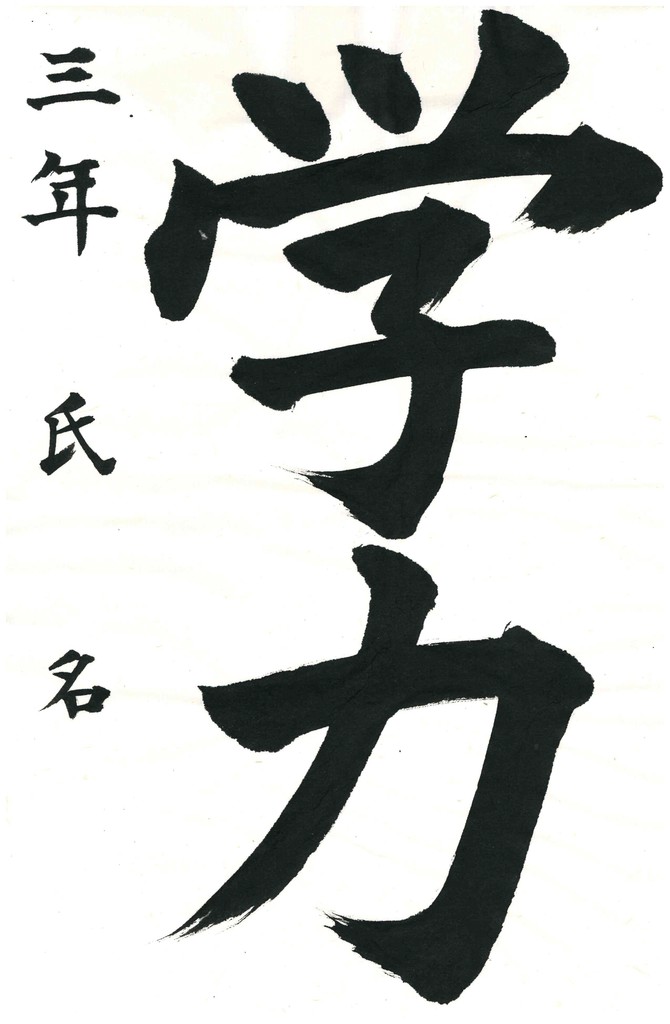 学力
三年 氏名